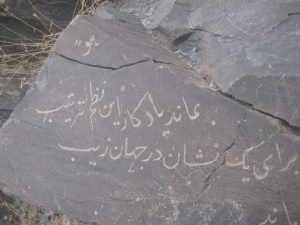 هو
بماند یادگار این نظم ترتیب
برای یک نشان در جهان زیب
ماند